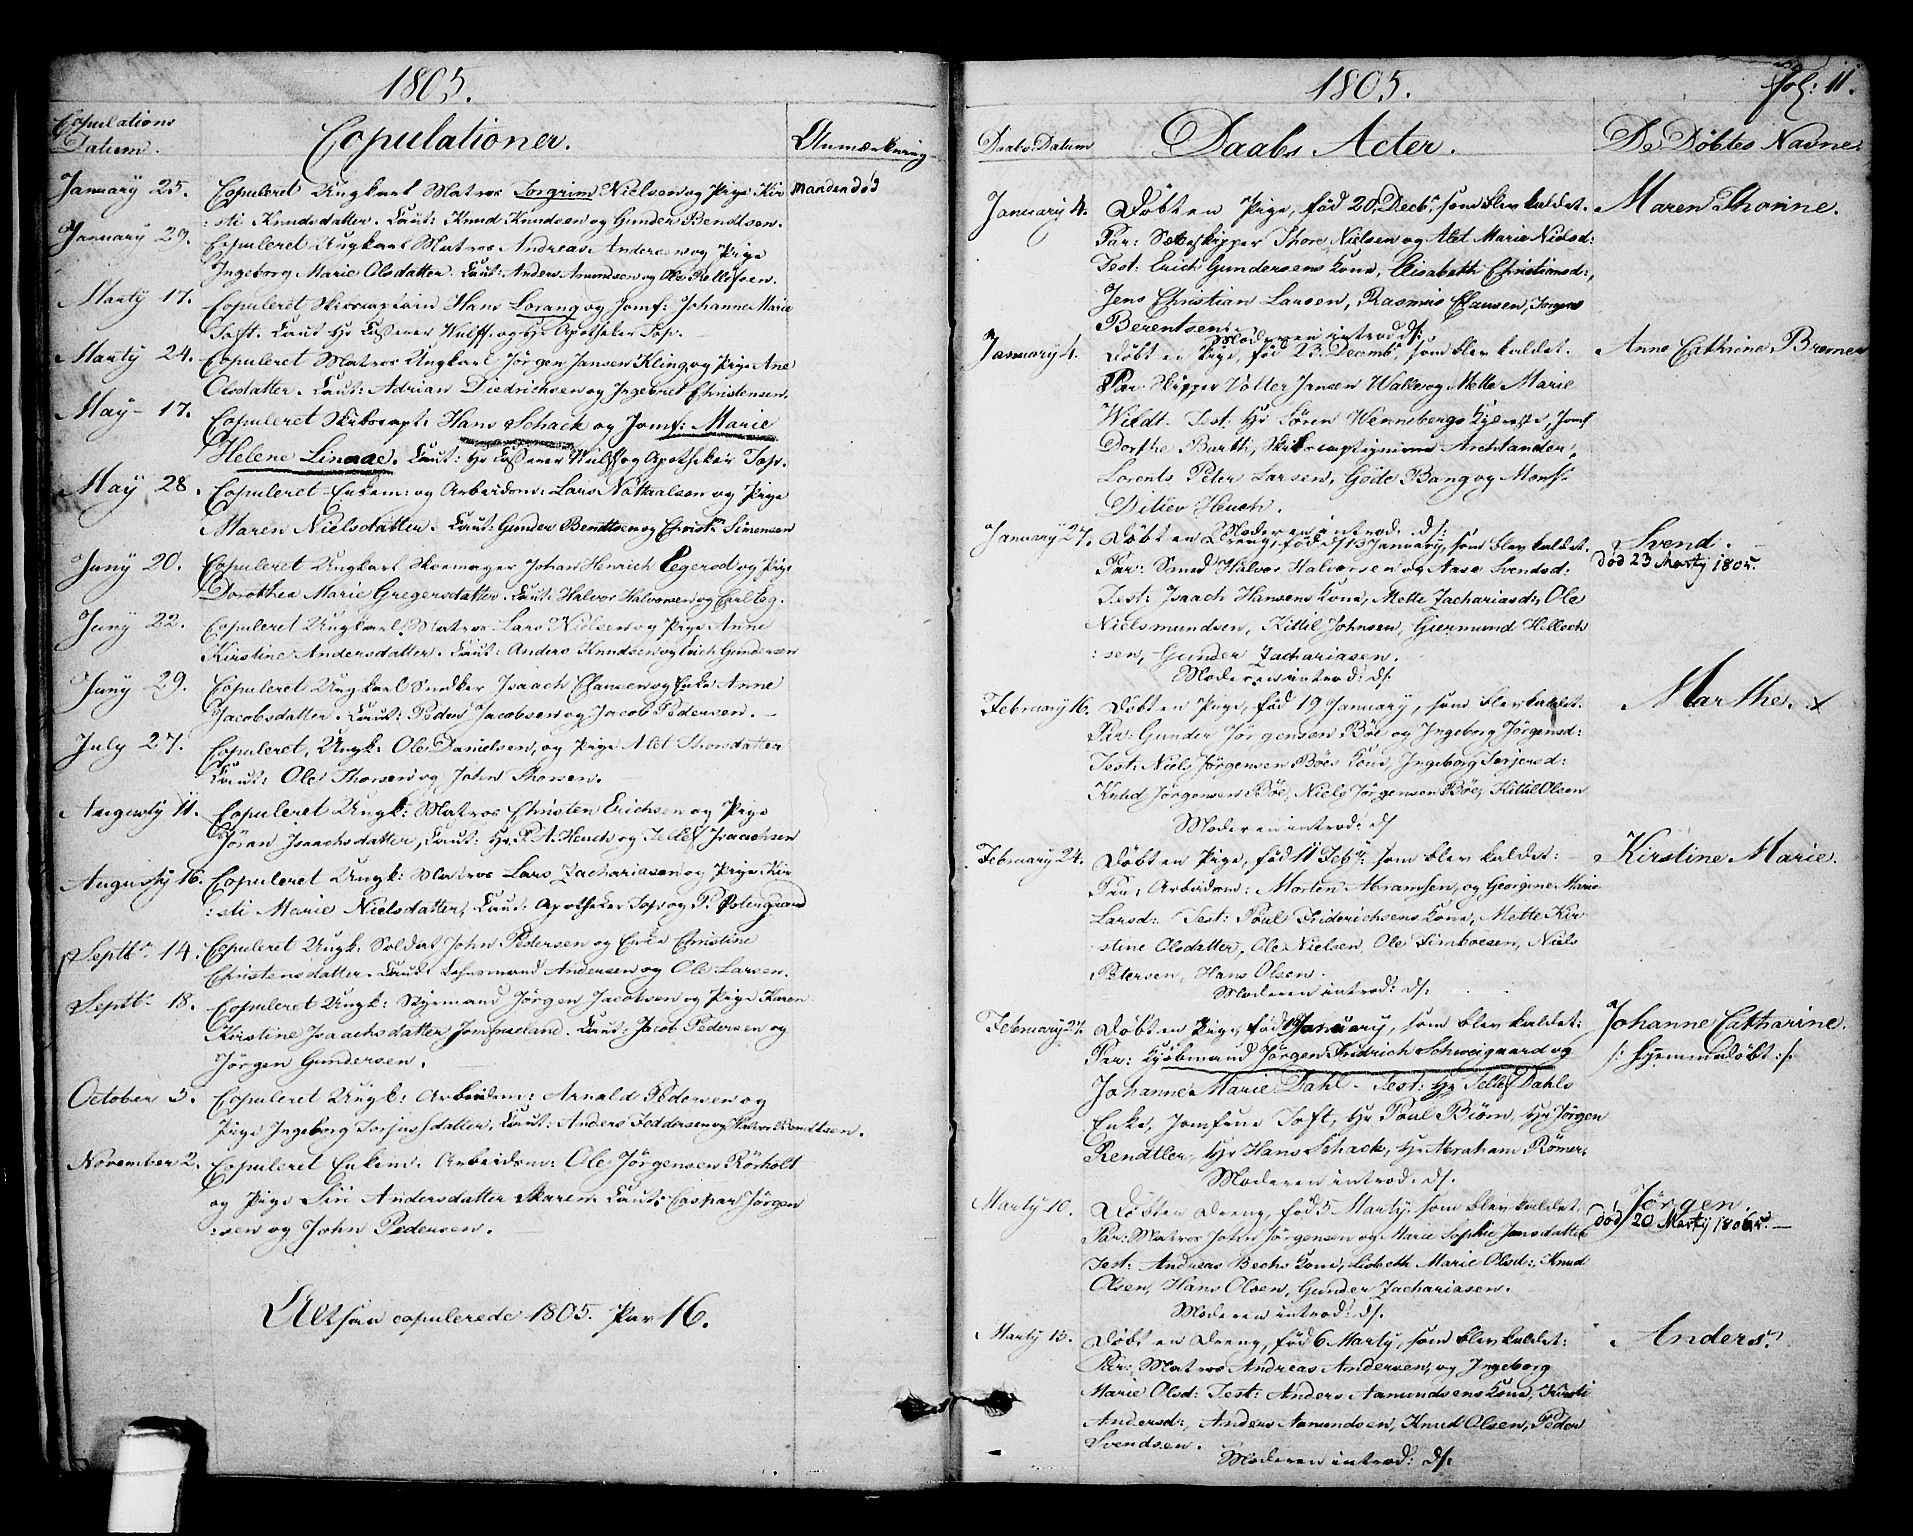 1805.
Copulations
Datum.
Copulationer.
Anmærkning
January 25. Copuleret Ungkarl Matros Torgrim Nielsen og Pige Kir manden død
:sti Knudsdatter. Caut: Knud Knudsen og Gunder Bendtsen.
January 29. Copuleret Ungkarl Matros Andreas Andersen og Pige
Ingeborg Marie Olsdatter. Caut: Anders Amundsen og Ole Tollefsen.
Marty 17. Copuleret Skibscaptain Hans Lorang og Jomf: Johanne Marie
Toft. Caut Hr Casserer Wulff og Hr Apotheker Top.
Marty 24. Copuleret Matros Ungkarl Jörgen Jansen Kling og Pige Ane
Olsdatter. Caut: Adrian Diedrichsen og Ingebret Christensen.
May 17. Copuleret Skibscapt: Hans Schack og Jomf: Marie
Helene Linaae. Caut: Hr Casserer Wulff og Apotheker Top.
May 28. Copuleret Enkem: og Arbeidsm: Lars Nottaalsen og Pige
Maren Nielsdatter. Caut: Gunder Bendtsen og Christn Simensen
Juny 20. Copuleret Ungkarl Skoemager Johan Henrich Egerod og Pige
Dorothea Marie Gregersdatter. Caut: Halvor Halvorsen og Carl Eeg.
Juny 22. Copuleret Ungkarl Matros Lars Nielsen og Pige Anne
Kirstine Andersdatter. Caut: Anders Knudsen og Erich Gundersen
Juny 29. Copuleret Ungkarl Snedker Isaach Clausen og Enke Anne
Jacobsdatter. Caut: Peder Jacobsen og Jacob Pedersen.
July 27. Copuleret, Ungk: Ole Danielsen, og Pige Alet Thorsdatter
Caut: Ole Thorsen og John Thorsen.
Augusty 11. Copuleret Ungk: Matros Christen Erichsen og Pige
Jöran Isaachsdatter, Caut: Hr P. A. Heuch og Tellef Isaachsen
Augusty 16. Copuleret Ungk: Matros Lars Zachariasen og Pige Kir
:sti Marie Nielsdatter, Caut: Apotheker Top og P.
Septbr 14. Copuleret Ungk: Soldat John Pedersen og Enke Christine
Christensdatter. Caut: Lehnsmand Andersen og Ole Larsen.
Septbr 18. Copuleret Ungk: Styrmand Jörgen Jacobsen og Pige Karen
Kirstine Isaachsdatter Jomfrueland. Caut: Jacob Pedersen og
Jörgen Gundersen.
October 5. Copuleret Ungk: Arbeidsm: Arnold Pedersen og
Pige Ingeborg Torjusdatter, Caut: Anders Feddersen og Halvor Bendtsen.
November 2. Copuleret Enkem. Arbeidsm: Ole Jörgensen Rörholt
og Pige Siri Andersdatter Skaren. Caut: Caspar Jörgen
:sen og John Pedersen.
Altsaa copulerede 1805. Par 16.
1805.
Fol: 11.
Daabs Datum
Daabs Acter.
De Döbtes Navne
January 4. Döbt en Pige, föd 20 Decbr, som blev kaldet. Maren Thorine.
Par: Skipper Thore Nielsen og Alet Marie Nielsd:
Test: Erich Gundersens Kone, Elisabeth Christiansd:,
Jens Christian Larsen, Rasmus Clausen, Jörgen
Berentsen.
Moderen introd: d/:
January 4. Döbt en Pige, föd 23 Decembr, som blev kaldet. Anne Cathrine Bremer
Par: Skipper Volter Jansen Wall og Mette Marie
Wildt. Test: Hr Sören Wennebergs Kjereste, Jomf
Dorthe Barth, Archtander,
Lorents Peter Larsen, Göite Bang og Monsr
Ditlev Heuch.
Moderen introd: d/:
January 27. Döbt en Dreng, föd d/ 13 January, som blev kaldet. Svend.
död 23 Marty 1805.
Par: Smed Halvor Halvorsen og Aase Svendsd.
Test: Isaach Hansens Kone, Mette Zachariasd:, Ole
Nielsmundsen, Kittil Johnsen, Giermund Hellech
:sen, Gunder Zachariasen.
Moderen introd: d/:
February 16. Döbt en Pige, föd 19 January, som blev kaldet. Marthe. x
Par: Gunder Jörgensen Böe og Ingeborg Jörgensd:
Test: Niels Jörgensen Böes Kone, Ingeborg Terjersd:
Knud Jörgensen Böe, Niels Jörgensen Böe, Kittil Olsen
Moderen introd: d/
February 24. Döbt en Pige, föd 11 Febr: som blev kaldet: Kirstine Marie.
Par: Arbeidsm: Morten Abramsen, og Georgine Marie
Larsd: Test: Poul Friderichsens Kone, Mette Kir
stine Olsdatter, Ole Nielsen, Ole Simboesen, Niels
Petersen, Hans Olsen.
Moderen introd: d/:
February 27. Döbt en Pige, föd January, som blev kaldet: Johanne Catharine.
/: hjemmedöbt :/
Par: Kjöbmand Jörgen Fridrich Schweigaard og
Johanne Marie Dahl. Test: Hr Tellef Dahls
Enke, Jomfrue Toft, Hr Poul Biörn, Hr Jörgen
Rendtler, Hr Hans Schack, Hr Abraham Römer.
Moderen introd: d/.
Marty 10. Döbt en Dreng, föd 5 Marty, som blev kaldet. Jörgen.
död 20 Marty 1805.
Par: Matros John Jörgensen og Marie Sophie Jansdatter
Test: Andreas Bechs Kone, Lisbeth Marie Olsd:, Knud
Olsen, Hans Olsen, Gunder Zachariasen.
Moderen introd: d/.
Marty 15. Döbt en Dreng, föd 6 Marty, som blev kaldet: Anders.
Par: Matros Andreas Andersen, og Ingeborg
Marie Olsd: Test: Anders Aamundsens Kone, Kirsti
Andersd:, Anders Aamundsen, Knud Olsen, Peder
Svendsen.
Moderen introd: d/: